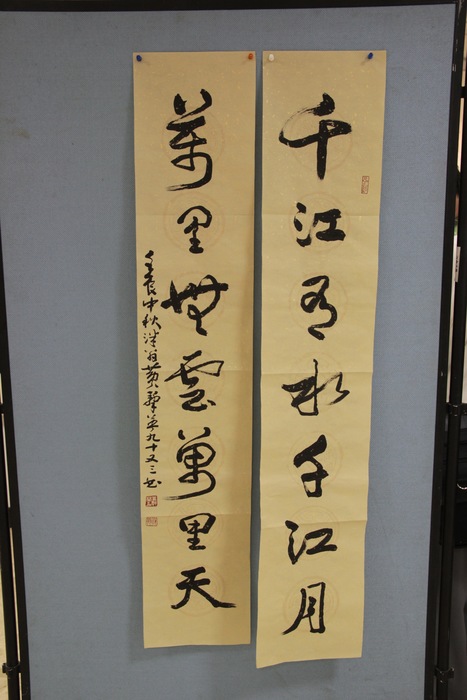 千江有水千江月
萬里無雲萬里天
壬辰中秋 翁黃 華年九十又三书